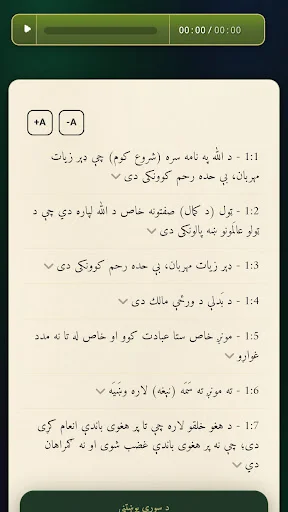 00:00 / 00:00
+A -A
1:1 - د الله په نامه سره (شروع كوم) چې ډېر زيات
مهربان، بې حده رحم كوونكى دى
1:2 - ټول (د كمال) صفتونه خاص د الله لپاره دي چې د
ټولو عالَمونو ښه پالونكى دى
1:3 - ډېر زيات مهربان، بې حده رحم كوونكى دى
1:4 - د بَدلې د ورځې مالك دى
1:5 - مونږ خاص ستا عبادت كوو او خاص له تا نه مدد
غواړو
1:6 - ته مونږ ته سَمَه (نېغه) لاره وښَيَه
1:7 - د هغو خلقو لاره چې تا پر هغوى باندې انعام كړى
دى؛ چې نه پر هغوى باندې غضب شوى او نه ګمراهان
دي
د سورې پوښتنې